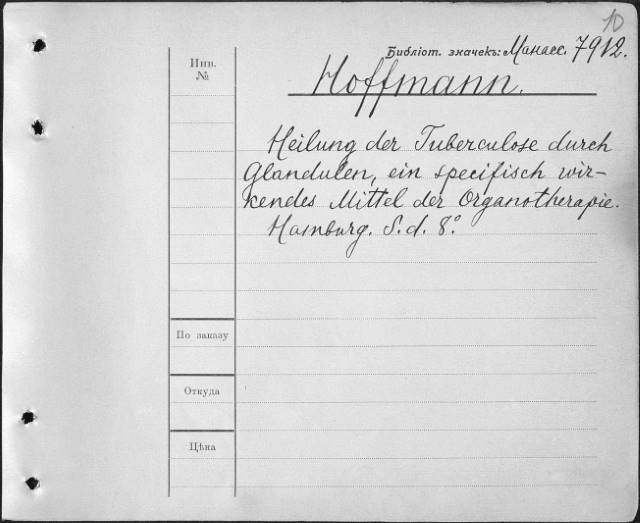 10
Библіот. значекъ: Манасс. 7912.
Инв.
№
Hoffmann.
Heilung der Tuberculose durch
Glandulen, ein specifisch wir-
kendes Mittel der Organotherapie.
Hamburg. S. d. 8°.
По заказу
Откуда
Цѣна